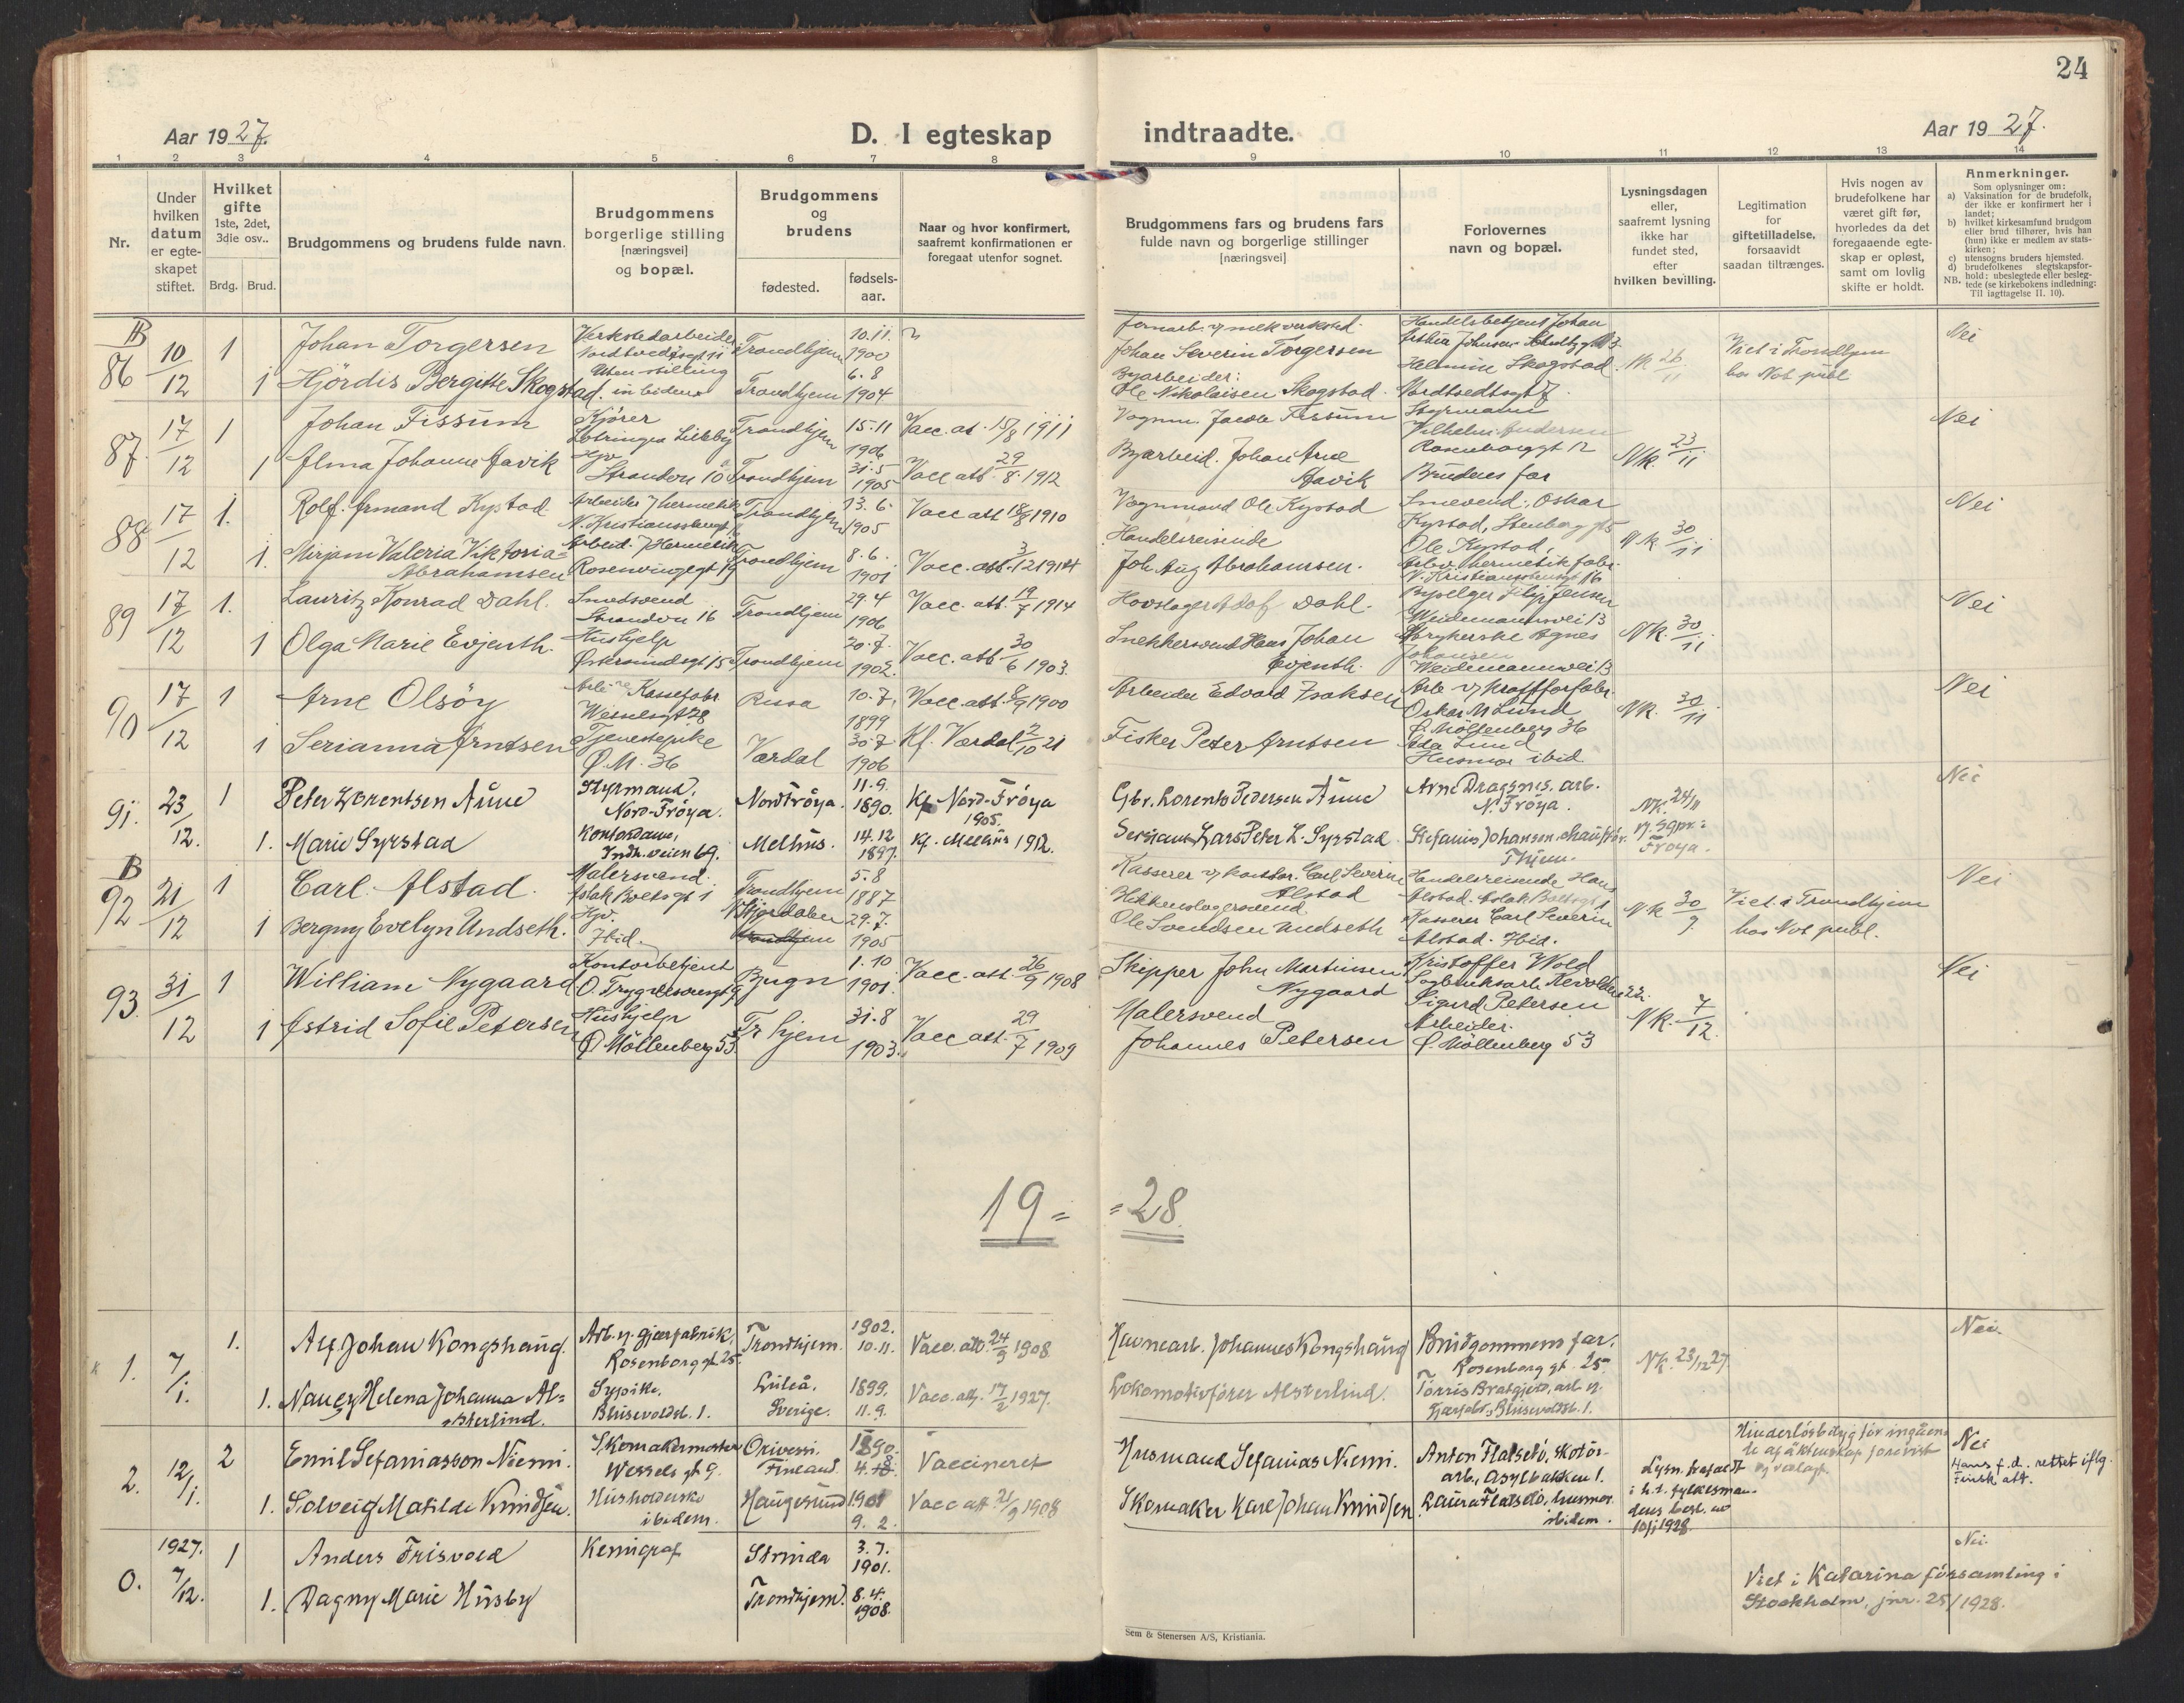 24
Aar 1927.
D. I egteskap
indtraadte.
Aar 1927.
1 2 3 4 5 6 7 8 9 10 11 12 13 14
Nr.
Under hvilken datum er egteskapet stiftet.
Hvilket gifte
1ste, 2det, 3die osv..
Brdg. Brud.
Brudgommens og brudens fulde navn.
Brudgommens borgerlige stilling [næringsvei] og bopæl.
Brudgommens og brudens
fødested.
fødselsaar.
Naar og hvor konfirmert, saafremt konfirmationen er foregaat utenfor sognet.
Brudgommens fars og brudens fars fulde navn og borgerlige stillinger [næringsvei]
Forlovernes navn og bopæl.
Lysningsdagen eller, saafremt lysning ikke har fundet sted, efter hvilken bevilling.
Legitimation for giftetilladelse, forsaavidt saadan tiltrænges.
Hvis nogen av brudefolkene har været gift før, hvorledes da det foregaaende egteskap er opløst, samt om lovlig skifte er holdt.
Anmerkninger.
Som oplysninger om:
a) Vaksination for de brudefolk, der ikke er konfirmert her i landet;
b) hvilket kirkesamfund brudgom eller brud tilhører, hvis han (hun) ikke er medlem av statskirken;
c) utensogns bruders hjemsted.
d) brudefolkenes slegtskapsforhold: ubeslegtede eller beslegtede (se kirkebokens indledning: NB. Til iagttagelse II. 10).
B
86 10/12 1 Johan Torgersen Verkstedarbeider Trondhjem 10.11. 1900 Johan Severin Torgersen Handelsbetjent Johan Nk 26/11 Viet i Trondhjem hos Not publ Nei
1 Hjördis Bergitte Skogstad Uten stilling Trondhjem 6.8 1904 Byarbeider: Ole Nikolaisen Skogstad Helmine Skogstad
87. 17/12 1 Johan Fissum Kjörer Trondhjem 15.11 1906 Vacc. at. 15/8 1911 Vognm. Jacob Fissum Styrmann Vilhelm Andersen Rosenborggt 12 Nk. 23/11 Nei
1 Alma Johanne Aavik Hgv Strandvn 10 Trondhjem 31.5 1905 Vacc att 29/8 1912 Byarbeid. Johan Arne Aavik Brudens far
88 17/12 1. Rolf Armand Kystad Trondhjem 13.6 1905 Vacc att 18/8 1910 Vognmand Ole Kystad Smedsvend: Oskar Kystad, Stenberg gt 5 Nk 30/11 Nei
1. Mirjam Valeria Viktoria Abrahamsen Rosenvingegt 19 Trondhjem 8.6. 1901 Vacc. att. 3/12 1914 Handelsreisende Joh. Aug Abrahamsen. Ole Kystad,
89 17/12 1. Lauritz Konrad Dahl. Smedsvend Strandvn 16 Trondhjem 29.4 1906 Vacc. att. 19/7 1914 Hovslager Adolf Dahl. Weidemannsvei 13 Nk. 30/11 Nei
1 Olga Marie Evjenth. Hushjelp Trondhjem 20.7. 1902. Vacc. att 30/6 1903. Snekkersvend Hans Johan Evjenth. Agnes Johansen Weidemannsvei 13
90 17/12 1 Arne Olsöy Kassefabr Wesselsgt 28 Rissa 10.7. 1899 Vacc. att. 8/9 1900 Arbeider Edvard Isaksen Oskar M Lund Ø. Möllenberg 36 Nk. 30/11 Nei
1 Serianna Arntsen Tjenestepike Ø.M. 36 Værdal 30.7 1906 Kf. Værdal 2/10 21 Fisker Peter Arntsen Lund Husmor ibid
91. 23/12. 1 Peter Lorentsen Aune Styrmand, Nord-Fröya. Nord Fröya. 11.9. 1890. Kf Nord-Fröya 1905. Gbr. Lorents Pedersen Aune Arne Dragsnes, arb. N. Fröya. Nk. 24/11 Nei
1. Marie Syrstad Kontordame, Indh. veien 69. Melhus. 14.12 1897. Kf. Melhus 1912. Sersjant Lars Peter L. Syrstad Stefanus Johansen, chauffør. Thjem. Fröya.
B
92 21/12 1 Carl Alstad. Malersvend. Aslak Boltsgt 1 Trondhjem 5.8 1887 Kasserer v/ kontor. Carl Severin Alstad Handelsreisende Hans Alstad. Aslak Boltsgt 1 Nk 30/9. Viet i Trondhjem hos Not publ. Nei
1 Bergny Evelyn Undseth. Hgv. Ibid. Stjørdalen 29.7. 1905 Blikkenslagersvend Ole Svendsen Undseth Kasserer Carl Severin Alstad. Ibid.
93. 31/12 1 William Nygaard Kontorbetjent Bjugn 1.10 1901. Vacc. att. 26/9 1908 Skipper John Martinsen Nygaard Kristoffer Wold Nk. 7/12. Nei
1 Astrid Sofie Petersen Hushjelp Ø Möllenberg 53 Tr hjem 31.8 1903. Vacc att. 29/7 1909 Malersvend Johannes Petersen Sigurd Petersen Arbeider. Ø. Möllenberg 53
19= =28.
1. 7/1. 1. Alf Johan Kongshaug. Arb. v. gjærfabrik, Rosenborg gt. 25. Trondhjem. 1902. 10.11. Vacc. att. 24/9 1908 Havnearb. Johannes Kongshaug Brudgommens far. Rosenborg gt. 25 Nk. 23/12 27 Nei.
1. Nancy Helena Johanna Alsterlind. Sypike. Luleå, Sverige. 1899. 11.9. Vacc. att. 17/2 1927. Lokomotivförer Alsterlind. Torris Bratgjerd, arb. v.
2. 12/1. 2 Emil Sefaniasson Niemi. Skomakermester Wessels gt 9. Orivessi. Finland. 1890. 4. 8. Vaccineret Husmand Sefanias Niemi. Anton Flatseth, skotöiarb., Asylbakken 1. Nei
Hans f.d. rettet iflg. Finsk att.
1. Solveig Matilde Knudsen. Husholderske ibidem. Haugesund 1901 9. 2. Vacc att 21/9 1908 Skomaker Karl Johan Knudsen Laura Flatseth, husmor ibidem. 10/1 1928.
0. 1927. 7/12. 1 Anders Trisvold Kemigraf Strinda 3.7. 1901. Nei.
1. Dagny Marie Husby Trondhjem. 8.4. 1908. Viet i Katarina församling i Stockholm, jnr. 25/1928.
Sem & Stenersen A/S, Kristiania.